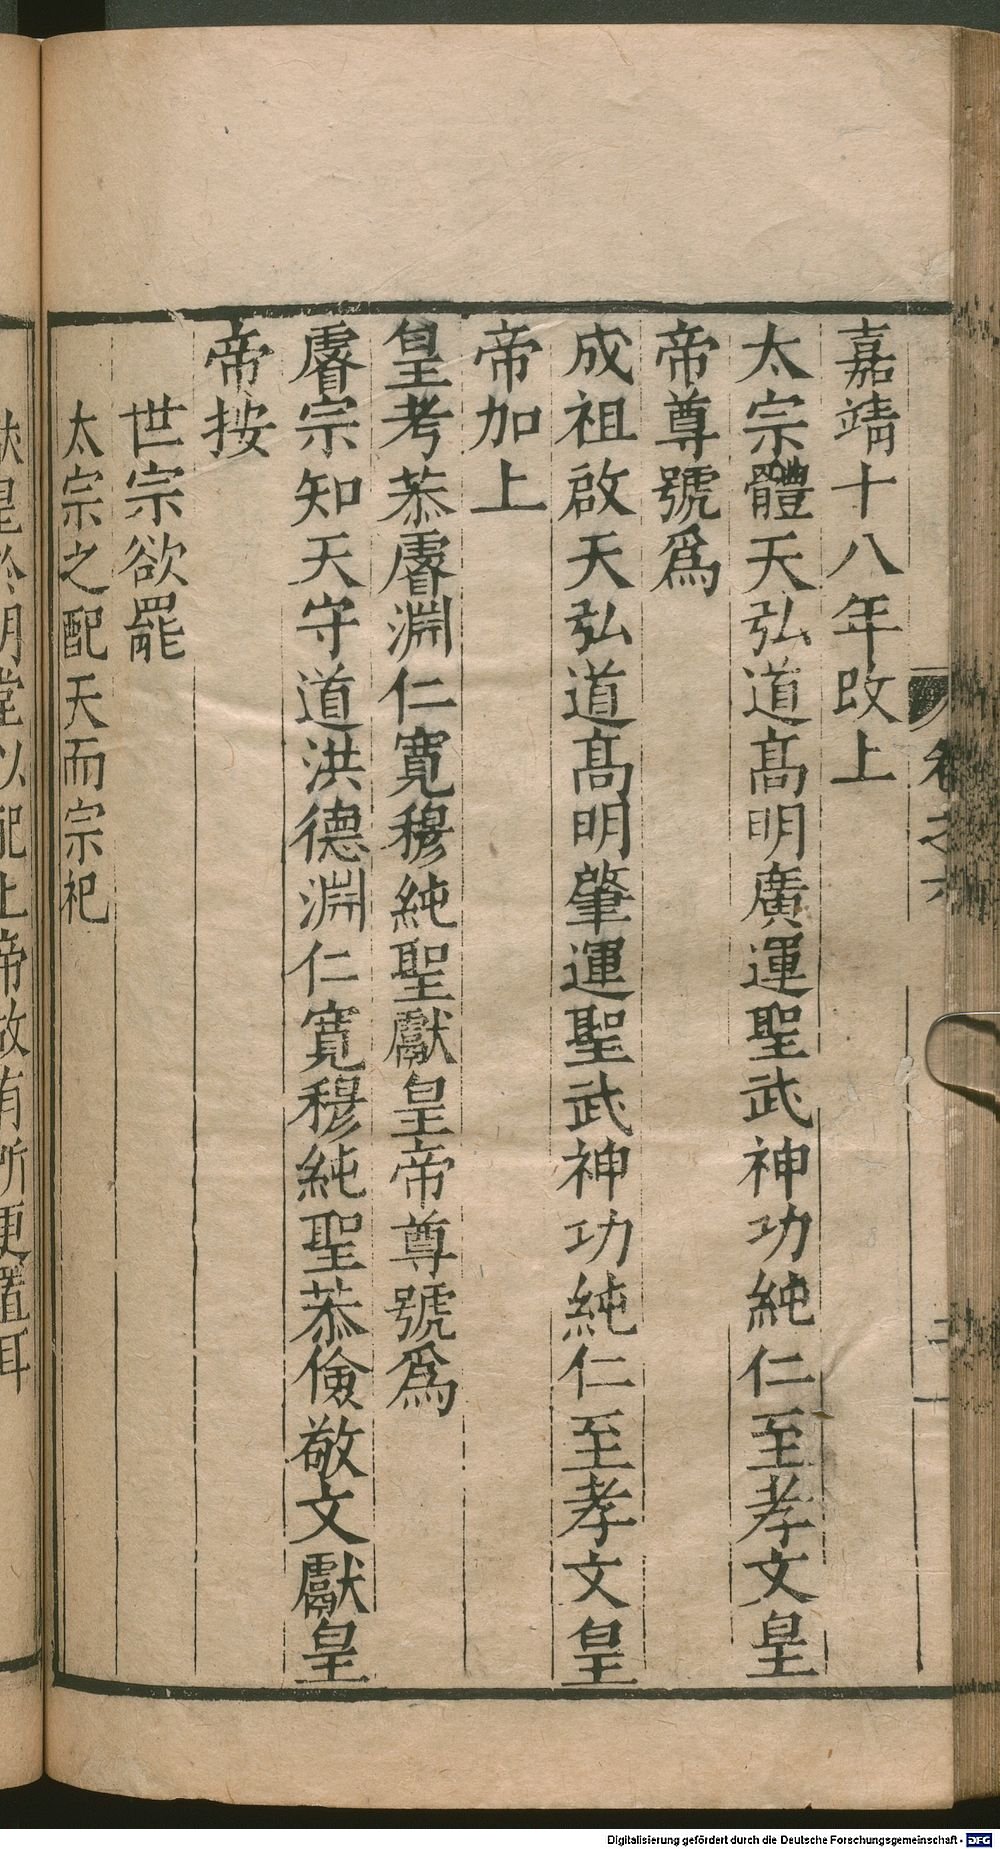 卷之六
嘉靖十八年改上
太宗體天弘道高明廣運聖武神功純仁至孝文皇
帝尊號爲
成祖啟天弘道高明肇運聖武神功純仁至孝文皇
帝加上
皇考恭睿淵仁寬穆純聖獻皇帝尊號爲
睿宗知天守道洪德淵仁寬穆純聖恭儉敬文獻皇
帝按
世宗欲罷
太宗之配天而宗祀
獻皇於明堂以配上帝故有所更置耳
Digitalisierung gefördert durch die Deutsche Forschungsgemeinschaft - DFG